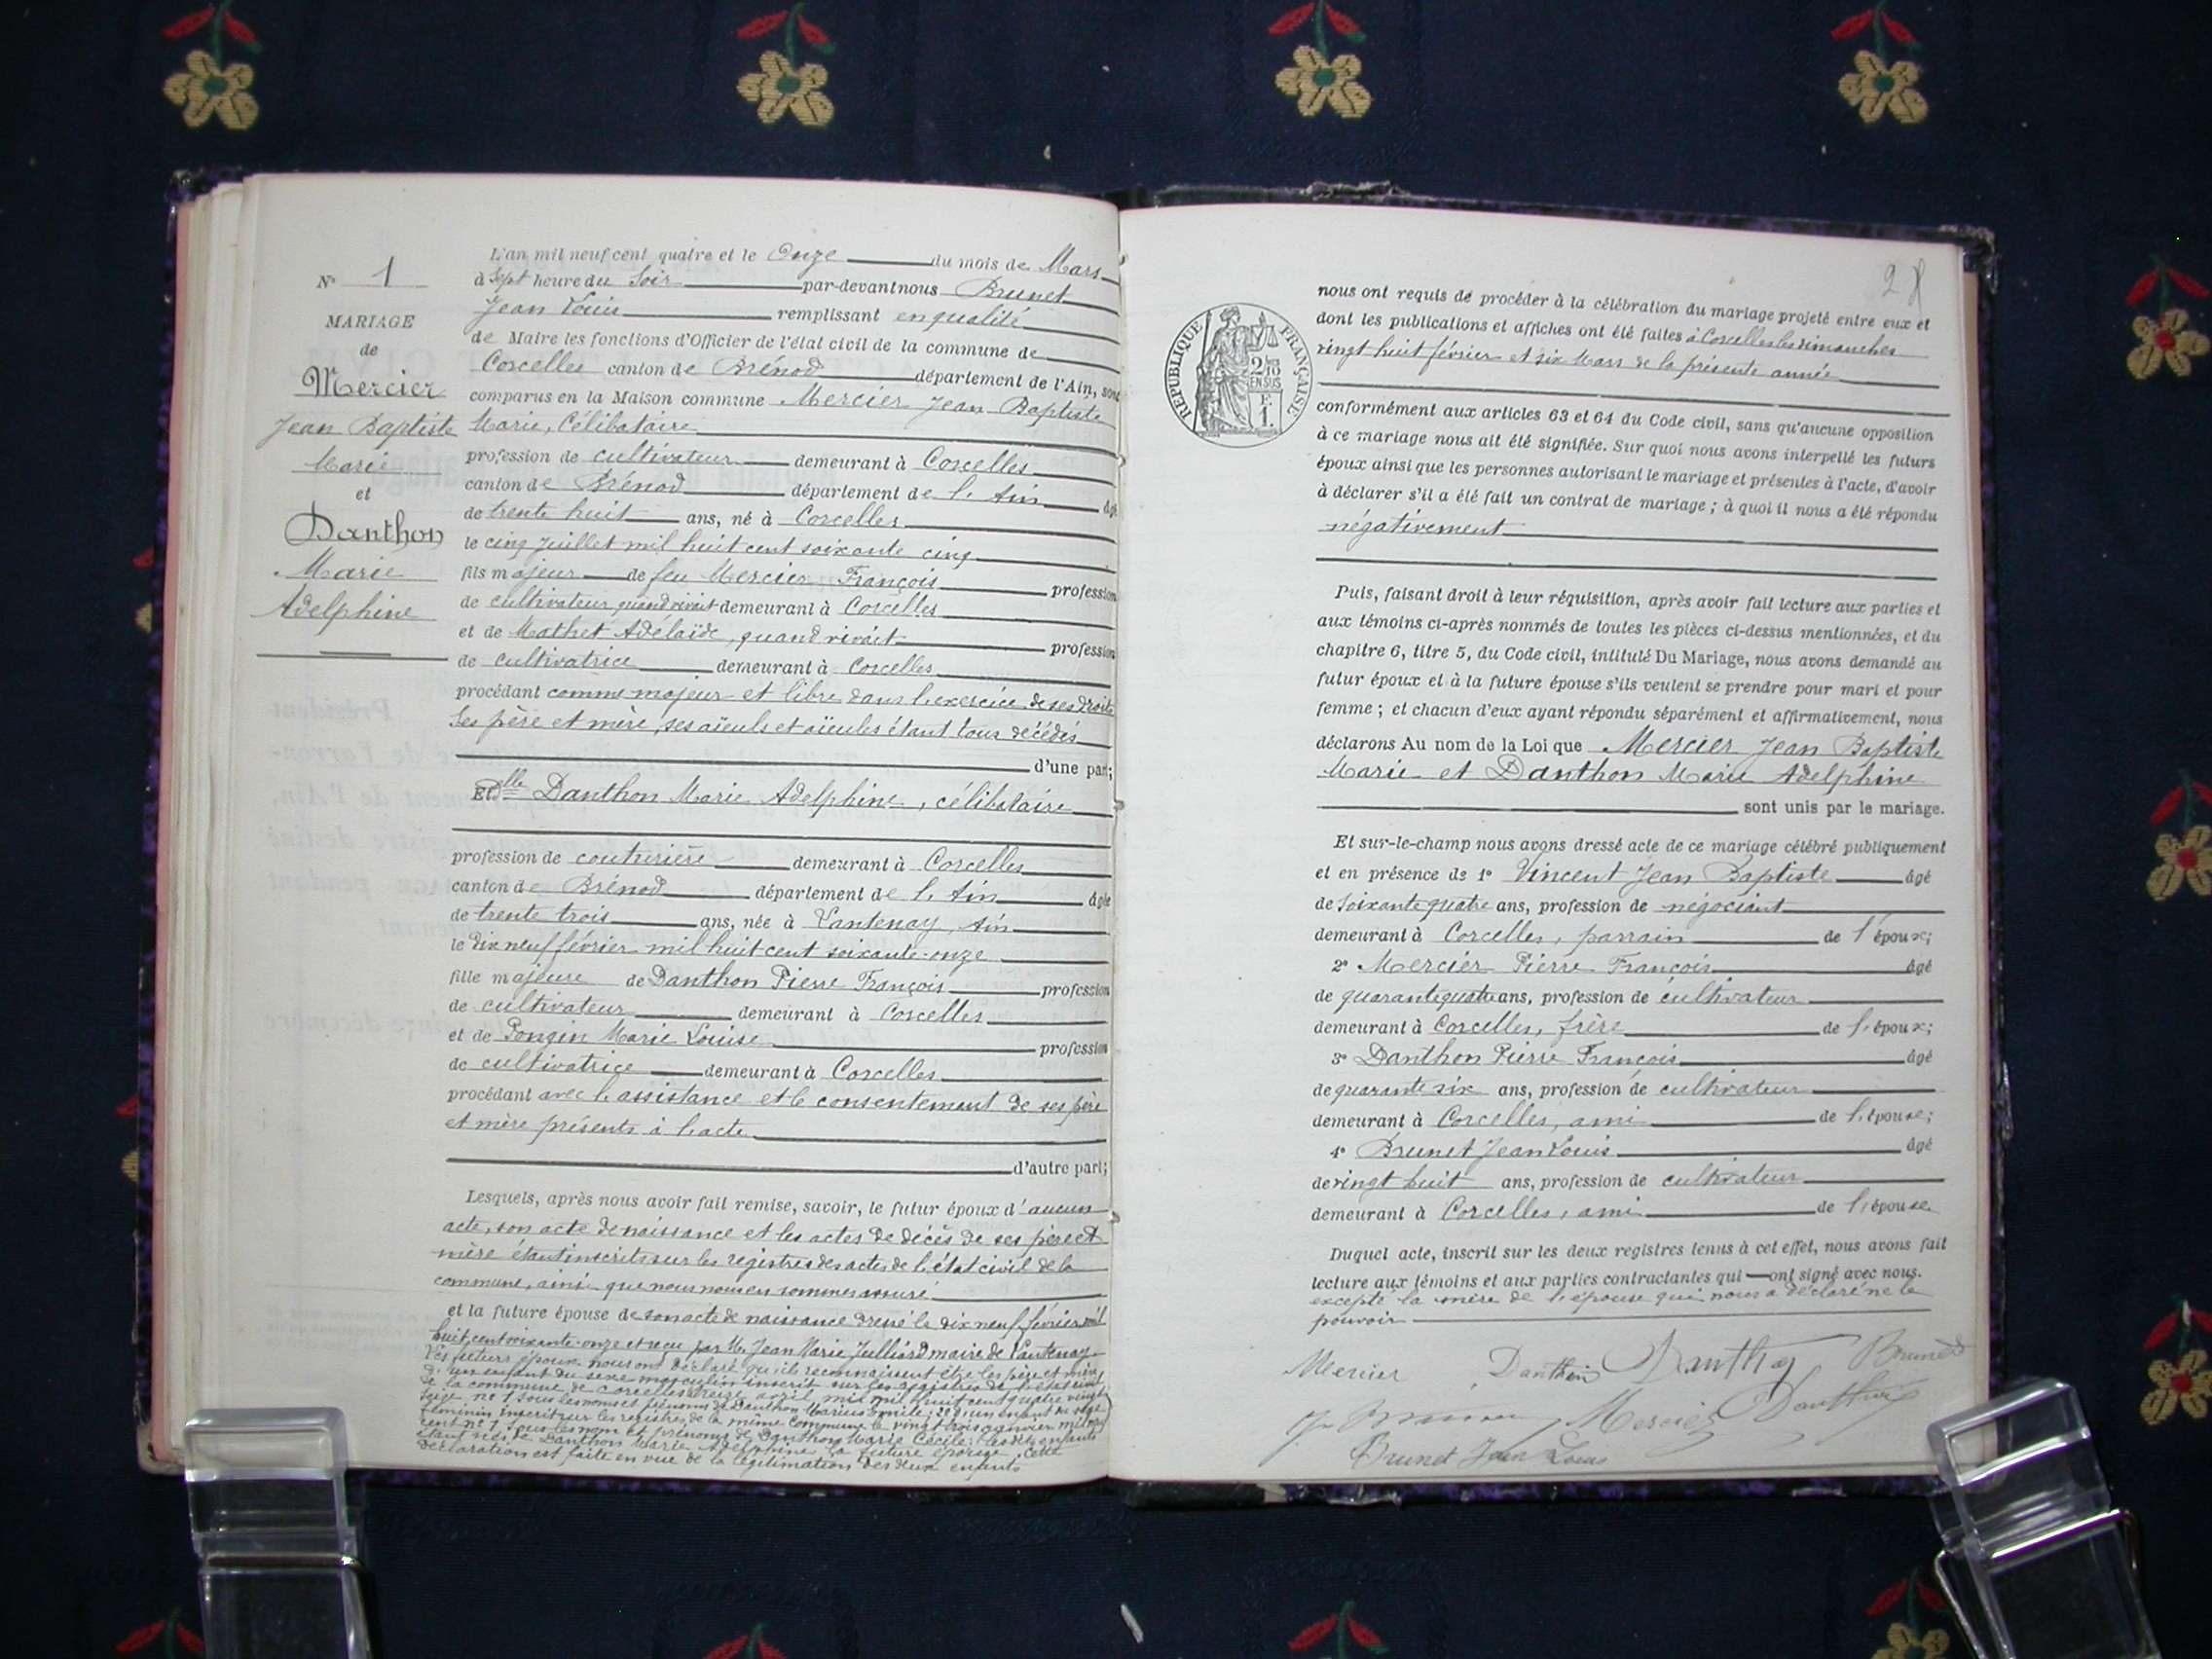 N° 1
MARIAGE
de
Mercier
Jean Baptiste
Marie
et
Danthon
Marie
Adelphine
L'an mil neuf cent quatre et le Onze du mois de Mars
à Sept heure du Soir par-devant nous Brunet
Jean Louis remplissant en qualité
de Maire les fonctions d'Officier de l'état civil de la commune de
Corcelles canton de Brénod département de l'Ain, sont
comparus en la Maison commune Mercier Jean Baptiste
Marie, Célibataire
profession de cultivateur demeurant à Corcelles
canton de Brénod département de l'Ain âgé
de trente huit ans, né à Corcelles
le cinq Juillet mil huit cent soixante cinq
fils majeur de feu Mercier François profession
de cultivateur, quand vivait demeurant à Corcelles
et de Mathet Adélaïde, quand vivait profession
de cultivatrice demeurant à Corcelles
procédant comme majeur et libre dans l'exercice de ses droits
Ses père et mère, ses aïeuls et aïeules étant tous décédés
d'une part;
Et Delle Danthon Marie Adelphine, célibataire
profession de couturière demeurant à Corcelles
canton de Brénod département de l'Ain âgée
de trente trois ans, née à Lantenay, Ain
le dix neuf février mil huit cent soixante-onze
fille majeure de Danthon Pierre François profession
de cultivateur demeurant à Corcelles
et de Pongin Marie Louise profession
de cultivatrice demeurant à Corcelles
procédant avec l'assistance et le consentement de ses père
et mère présents à l'acte
d'autre part;
Lesquels, après nous avoir fait remise, savoir, le futur époux d'aucun
acte, son acte de naissance et les actes de décès de ses père et
mère étant inscrits sur les registres des actes de l'état civil de la
commune, ainsi que nous nous en sommes assuré
et la future épouse de son acte de naissance dressé le dix neuf février mil
huit cent soixante-onze et reçu par Mr Jean Marie Julliard maire de Lantenay
Les futurs époux nous ont déclaré qu'ils reconnaissent être les père et mère
d'un enfant du sexe masculin inscrit sur les registres de l'état civil
de la commune de Corcelles treize avril mil huit cent quatre vingt
seize n° 1 sous les noms et prénoms de Danthon Marius Emile; 2° d'un enfant du sexe
féminin inscrit sur les registres de la même commune le vingt trois janvier mil neuf
cent n° 1 sous les nom et prénoms de Danthon Marie Cécile; les dits enfants
étant nés de Danthon Marie Adelphine la future épouse. Cette
déclaration est faite en vue de la légitimation des deux enfants
28
RÉPUBLIQUE FRANÇAISE
2/10
EN SUS
F.
1.
nous ont requis de procéder à la célébration du mariage projeté entre eux et
dont les publications et affiches ont été faites à Corcelles les dimanches
vingt huit février et six Mars de la présente année
conformément aux articles 63 et 64 du Code civil, sans qu'aucune opposition
à ce mariage nous ait été signifiée. Sur quoi nous avons interpellé les futurs
époux ainsi que les personnes autorisant le mariage et présentes à l'acte, d'avoir
à déclarer s'il a été fait un contrat de mariage; à quoi il nous a été répondu
négativement
Puis, faisant droit à leur réquisition, après avoir fait lecture aux parties et
aux témoins ci-après nommés de toutes les pièces ci-dessus mentionnées, et du
chapitre 6, titre 5, du Code civil, intitulé Du Mariage, nous avons demandé au
futur époux et à la future épouse s'ils veulent se prendre pour mari et pour
femme; et chacun d'eux ayant répondu séparément et affirmativement, nous
déclarons Au nom de la Loi que Mercier Jean Baptiste
Marie et Danthon Marie Adelphine
sont unis par le mariage.
Et sur-le-champ nous avons dressé acte de ce mariage célébré publiquement
et en présence de 1° Vincent Jean Baptiste âgé
de soixante quatre ans, profession de négociant
demeurant à Corcelles, parrain de l'époux;
2° Mercier Pierre François âgé
de quarante quatre ans, profession de cultivateur
demeurant à Corcelles, frère de l'époux;
3° Danthon Pierre François âgé
de quarante six ans, profession de cultivateur
demeurant à Corcelles, ami de l'épouse;
4° Brunet Jean Louis âgé
de vingt huit ans, profession de cultivateur
demeurant à Corcelles, ami de l'épouse
Duquel acte, inscrit sur les deux registres tenus à cet effet, nous avons fait
lecture aux témoins et aux parties contractantes qui ont signé avec nous.
excepté la mère de l'épouse qui nous a déclaré ne le
pouvoir
Mercier Danthon Danthon Brunet
Mercier Danthon
Brunet Jean Louis